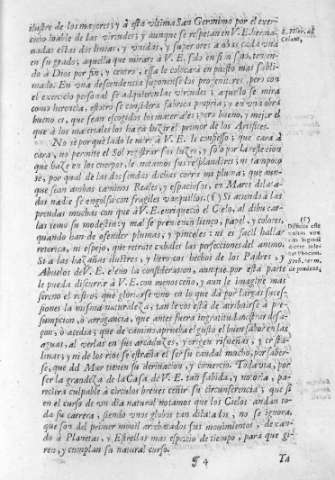 ilustre de los mayores; y à esta vltima San Geronimo por el exer-
cicio loable de las virtudes; y aunque se respetan en V.E. herma-
nadas estas dos lineas, y vnidas, y superiores à
en su grado, aquella que mirare à V.E. solo en si
do à Dios por fin, y centro, essa le colocarà en puesto mas subli-
mado. En vna descendencia
el exercicio personal se adquieren las virtudes; aquello se mira
como herencia, estotro se considera fabrica propria; y en vna obra
buena es, que sean escogidos los materiales; pero bueno, y mejor es
que à los materiales los haga luzir el primor de los Artifices.
No sè por què lado le mire à V.E. le confiesso; que cara à
cara, no permite el Sol registrar sus luzes, y solo por la reflexion
que haze en los cuerpos, le notamos sus resplandores; ni tampoco
sè, por qual de las dos sendas dichas corra mi pluma; que aun-
que sean ambas caminos Reales, y espaciosos, en Mares dilata-
dos nadie se engolfa con fragiles vanquillos. (f) Si atiendo à las
prendas muchas con que à V.E. enriqueciò el Cielo, al dibuxar-
las temo su modestia; y mal se previenen lienço, papel, y colores,
quando han de ofender plumas, y pinceles: ni es facil hallar
retorica, ni espejo, que retrate cabales las perfecciones del animo.
Si à las hazañas ilustres, y heroicos hechos de los Padres, y
Abuelos de V.E. elevo la consideracion, aunque por esta parte
le pueda discurrir à V.E. con menos ceño, y aun le imagine mas
sereno el rostro; que gloriarse vno en lo que dà por largas suces-
siones la misma naturaleza, tan lexos està de atribuirse à pre-
sumpcion, ò arrogancia, que antes fuera ingratitud
ò necedad; que de camino aprecia el gusto el buen sabor en las
aguas, al verlas en sus arcaduzes, y origen risueñas, y cristali-
nas; y ni de los rios se estraña el ser su caudal mucho, por saber-
se, que del Mar tienen su derivacion, y comercio. Todavia, por
ser la grandeza de la Casa de V.E. tan sabida, y notoria, pa-
reciera culpable à circulos breves ceñir su circunferencia; que si
en el curso de vn dia natural notamos que los Cielos andan to-
da su carrera, siendo vnos globos tan dilatados, no se ignora,
que son del primer movil arrebatados sus movimientos, de xan-
do à Planetas, y Estrellas mas espacio de tiempo, para que gi-
ren, y cumplan su natural curso.
¶ 4 Ta
(f)